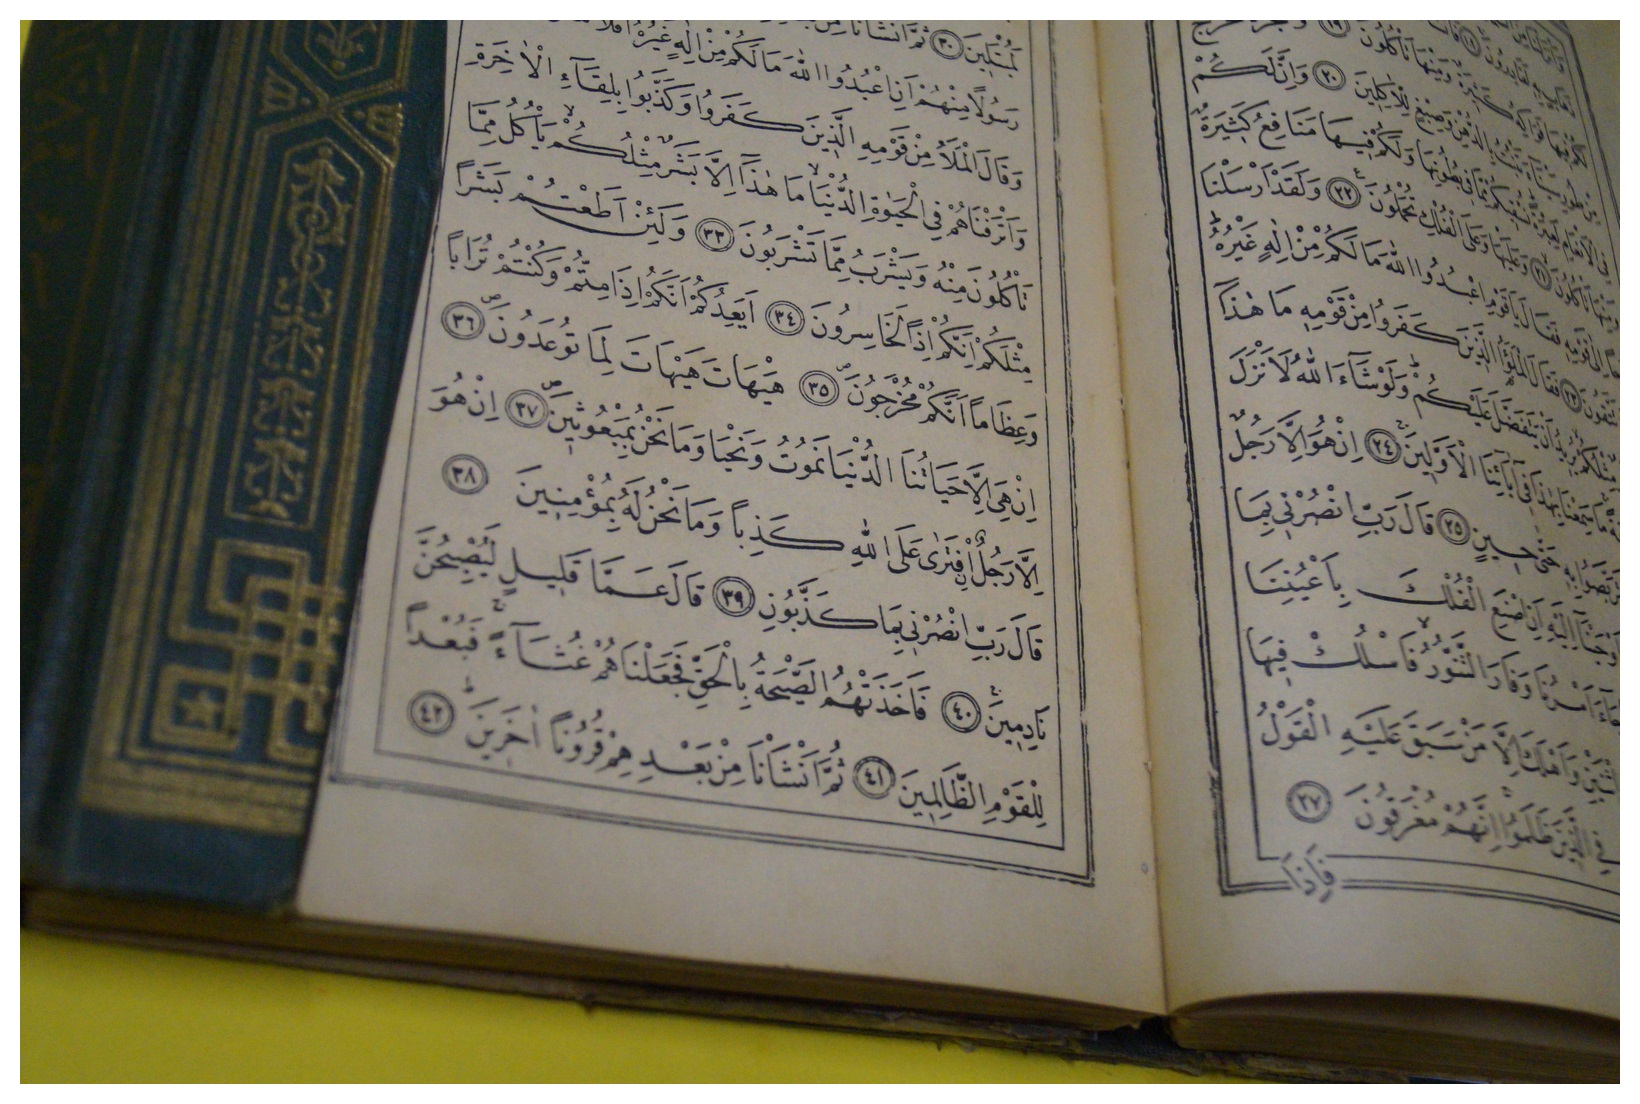 لَكُمْ فِيهَا فَوَاكِهُ كَثِيرَةٌ وَمِنْهَا تَأْكُلُونَ ﴿١٩﴾ وَشَجَرَةً تَخْرُجُ
مِنْ طُورِ سَيْنَاءَ تَنْبُتُ بِالدُّهْنِ وَصِبْغٍ لِلْاٰكِلِينَ ﴿٢٠﴾ وَاِنَّ لَكُمْ
فِي الْاَنْعَامِ لَعِبْرَةً نُسْقِيكُمْ مِمَّا فِي بُطُونِهَا وَلَكُمْ فِيهَا مَنَافِعُ كَثِيرَةٌ
وَمِنْهَا تَأْكُلُونَ ﴿٢١﴾ وَعَلَيْهَا وَعَلَى الْفُلْكِ تُحْمَلُونَ ﴿٢٢﴾ وَلَقَدْ اَرْسَلْنَا
اِلٰى قَوْمِهِ فَقَالَ يَا قَوْمِ اعْبُدُوا اللّٰهَ مَا لَكُمْ مِنْ اِلٰهٍ غَيْرُهُ
تَتَّقُونَ ﴿٢٣﴾ فَقَالَ الْمَلَؤُا الَّذِينَ كَفَرُوا مِنْ قَوْمِهِ مَا هٰذَا
مِثْلُكُمْ يُرِيدُ اَنْ يَتَفَضَّلَ عَلَيْكُمْ وَلَوْ شَاءَ اللّٰهُ لَاَنْزَلَ
مَا سَمِعْنَا بِهٰذَا فِي اٰبَائِنَا الْاَوَّلِينَ ﴿٢٤﴾ اِنْ هُوَ اِلَّا رَجُلٌ
فَتَرَبَّصُوا بِهِ حَتّٰى حِينٍ ﴿٢٥﴾ قَالَ رَبِّ انْصُرْنِي بِمَا
فَاَوْحَيْنَا اِلَيْهِ اَنِ اصْنَعِ الْفُلْكَ بِاَعْيُنِنَا
جَاءَ اَمْرُنَا وَفَارَ التَّنُّورُ فَاسْلُكْ فِيهَا
اثْنَيْنِ وَاَهْلَكَ اِلَّا مَنْ سَبَقَ عَلَيْهِ الْقَوْلُ
فِي الَّذِينَ ظَلَمُوا اِنَّهُمْ مُغْرَقُونَ ﴿٢٧﴾
فَاِذَا
لَمُبْتَلِينَ ﴿٣٠﴾ ثُمَّ اَنْشَأْنَا مِنْ
رَسُولًا مِنْهُمْ اَنِ اعْبُدُوا اللّٰهَ مَا لَكُمْ مِنْ اِلٰهٍ غَيْرُهُ اَفَلَا
وَقَالَ الْمَلَأُ مِنْ قَوْمِهِ الَّذِينَ كَفَرُوا وَكَذَّبُوا بِلِقَاءِ الْاٰخِرَةِ
وَاَتْرَفْنَاهُمْ فِي الْحَيٰوةِ الدُّنْيَا مَا هٰذَا اِلَّا بَشَرٌ مِثْلُكُمْ يَأْكُلُ مِمَّا
تَأْكُلُونَ مِنْهُ وَيَشْرَبُ مِمَّا تَشْرَبُونَ ﴿٣٣﴾ وَلَئِنْ اَطَعْتُمْ بَشَرًا
مِثْلَكُمْ اِنَّكُمْ اِذًا لَخَاسِرُونَ ﴿٣٤﴾ اَيَعِدُكُمْ اَنَّكُمْ اِذَا مِتُّمْ وَكُنْتُمْ تُرَابًا
وَعِظَامًا اَنَّكُمْ مُخْرَجُونَ ﴿٣٥﴾ هَيْهَاتَ هَيْهَاتَ لِمَا تُوعَدُونَ ﴿٣٦﴾
اِنْ هِيَ اِلَّا حَيَاتُنَا الدُّنْيَا نَمُوتُ وَنَحْيَا وَمَا نَحْنُ بِمَبْعُوثِينَ ﴿٣٧﴾ اِنْ هُوَ
اِلَّا رَجُلٌ اۨفْتَرٰى عَلَى اللّٰهِ كَذِبًا وَمَا نَحْنُ لَهُ بِمُؤْمِنِينَ ﴿٣٨﴾
قَالَ رَبِّ انْصُرْنِي بِمَا كَذَّبُونِ ﴿٣٩﴾ قَالَ عَمَّا قَلِيلٍ لَيُصْبِحُنَّ
نَادِمِينَ ﴿٤٠﴾ فَاَخَذَتْهُمُ الصَّيْحَةُ بِالْحَقِّ فَجَعَلْنَاهُمْ غُثَاءً فَبُعْدًا
لِلْقَوْمِ الظَّالِمِينَ ﴿٤١﴾ ثُمَّ اَنْشَأْنَا مِنْ بَعْدِهِمْ قُرُونًا اٰخَرِينَ ﴿٤٢﴾